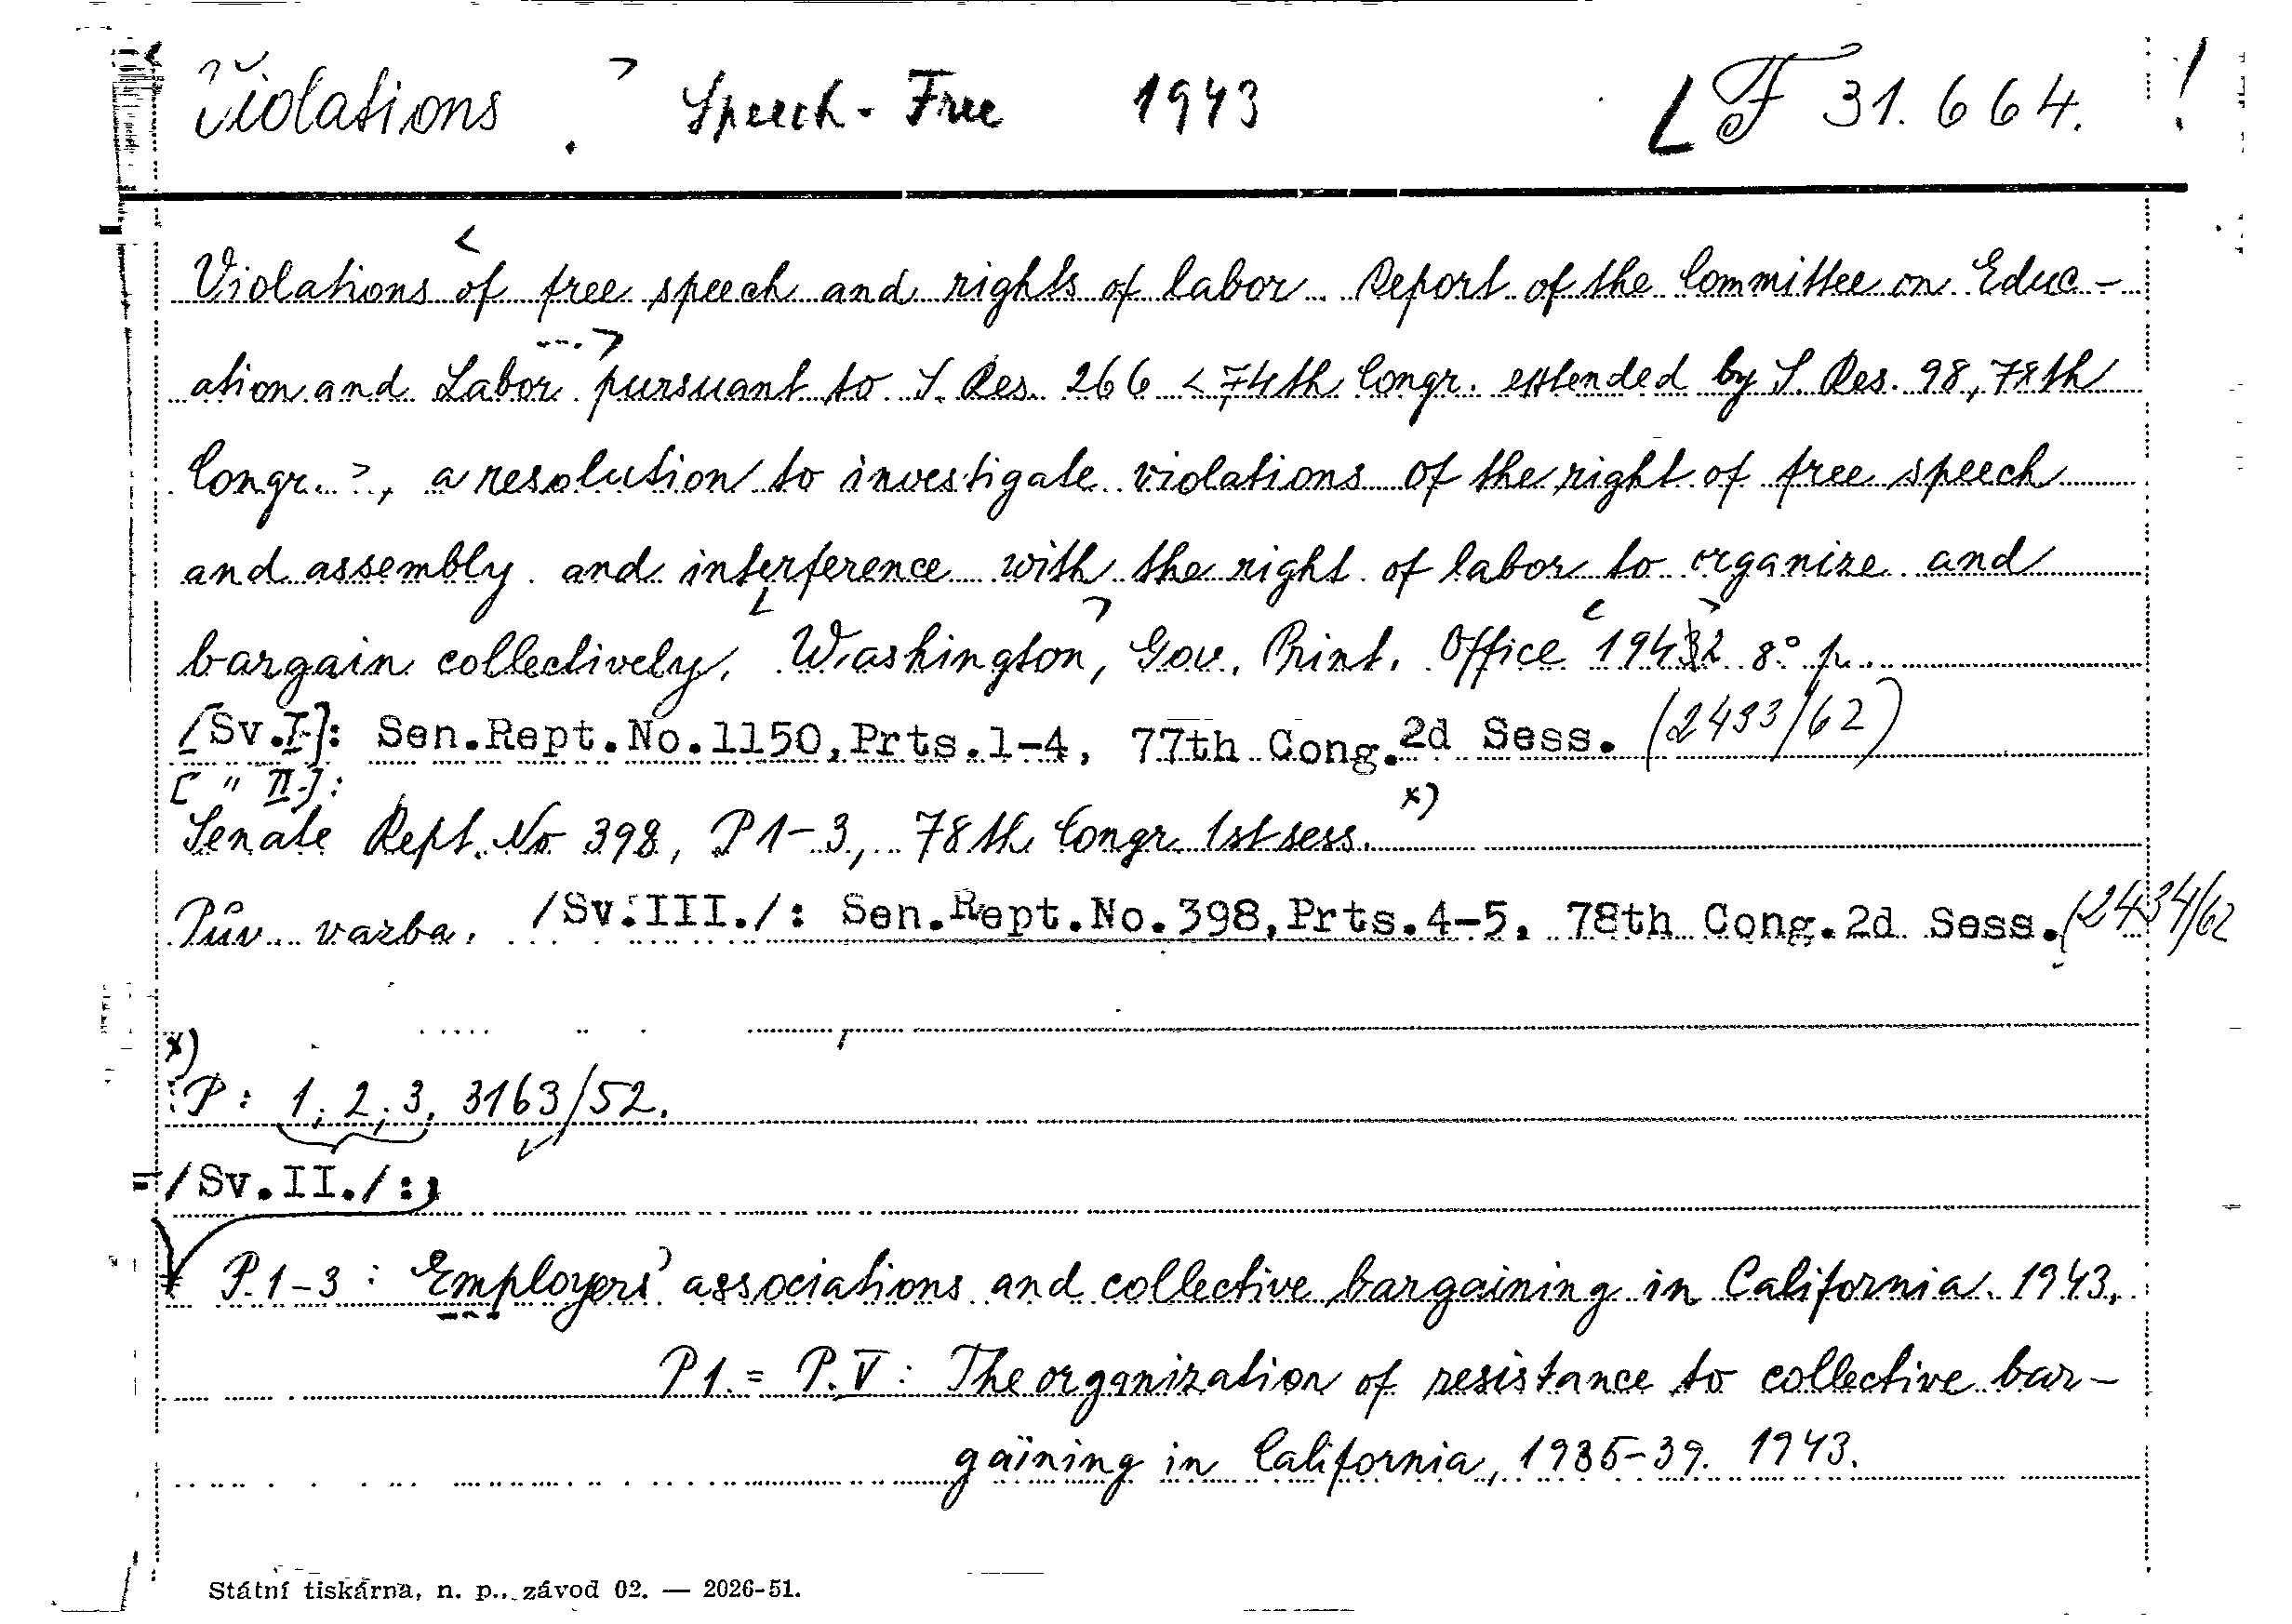 Violations Speech - Free 1943 LF 31.664. !
Violations of free speech and rights of labor. Report of the Committee on Educ-
ation and Labor pursuant to S. Res. 266 <74th Congr. extended by S. Res. 98, 78th
Congr.>, a resolution to investigate violations of the right of free speech
and assembly and interference with the right of labor to organize and
bargain collectively. Washington, Gov. Print. Office 1942 8° p.
[Sv.I.]: Sen.Rept.No.1150,Prts.1-4, 77th Cong.2d Sess. (2433/62)
[ " II.]:
Senate Rept. No 398, P 1-3, 78th Congr. 1st sess. x)
Pův. vazba. /Sv.III./: Sen.Rept.No.398,Prts.4-5, 78th Cong.2d Sess.(2434/62
x)
P: 1, 2, 3, 3163/52.
=/Sv.II./:
P. 1-3 : Employers' associations and collective bargaining in California. 1943.
P 1. = P. V : The organization of resistance to collective bar-
gaining in California, 1935-39. 1943.
Státní tiskárna, n. p., závod 02. — 2026-51.